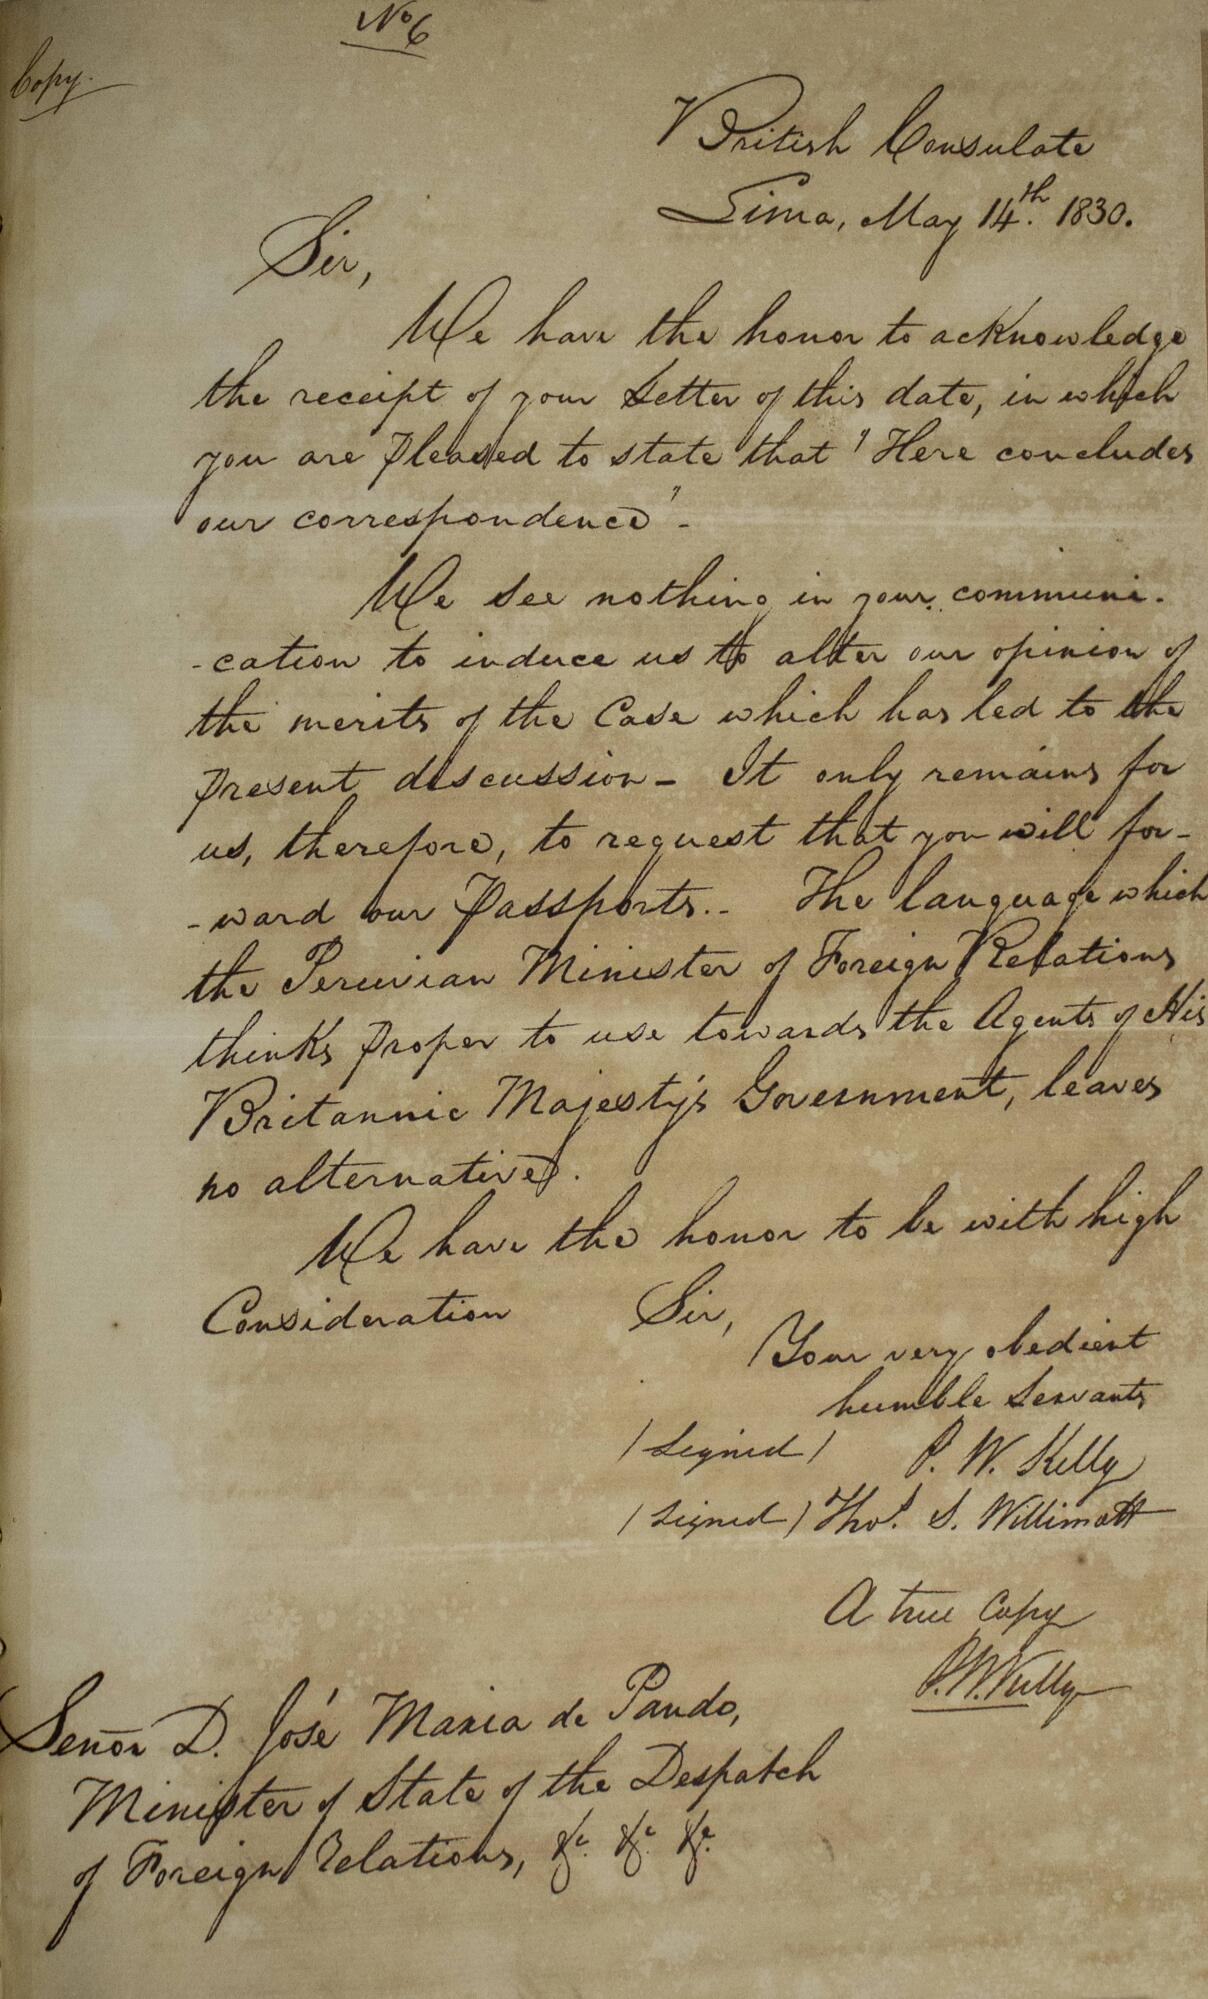 No 6
Copy.
British Consulate
Lima, May 14th. 1830.
Sir,
We have the honor to acknowledge
the receipt of your Letter of this date, in which
you are pleased to state that "Here concludes
our correspondence" -
We see nothing in your communi-
-cation to induce us to alter our opinion of
the merits of the Case which has led to the
present discussion - It only remains for
us, therefore, to request that you will for-
-ward our Passports.- The language which
the Peruvian Minister of Foreign Relations
thinks proper to use towards the Agents of His
Britannic Majesty's Government, leaves
no alternative.
We have the honor to be with high
Consideration Sir,
Your very obedient
humble Servants
(signed) P. W. Kelly
(signed) Thos. S. Willimott
A true Copy
P. W. Kelly
Señor D. José Maria de Pando,
Minister of State of the Despatch
of Foreign Relations, &c. &c. &c.